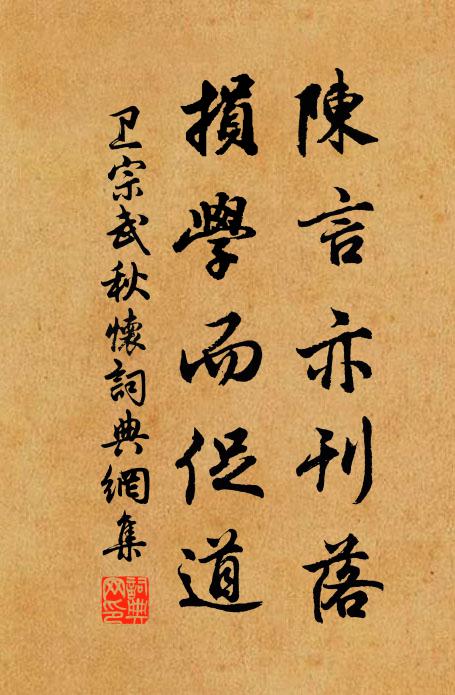 陳言亦刊落
損學而促道
卫宗武秋懷詞典網集
詞典網印